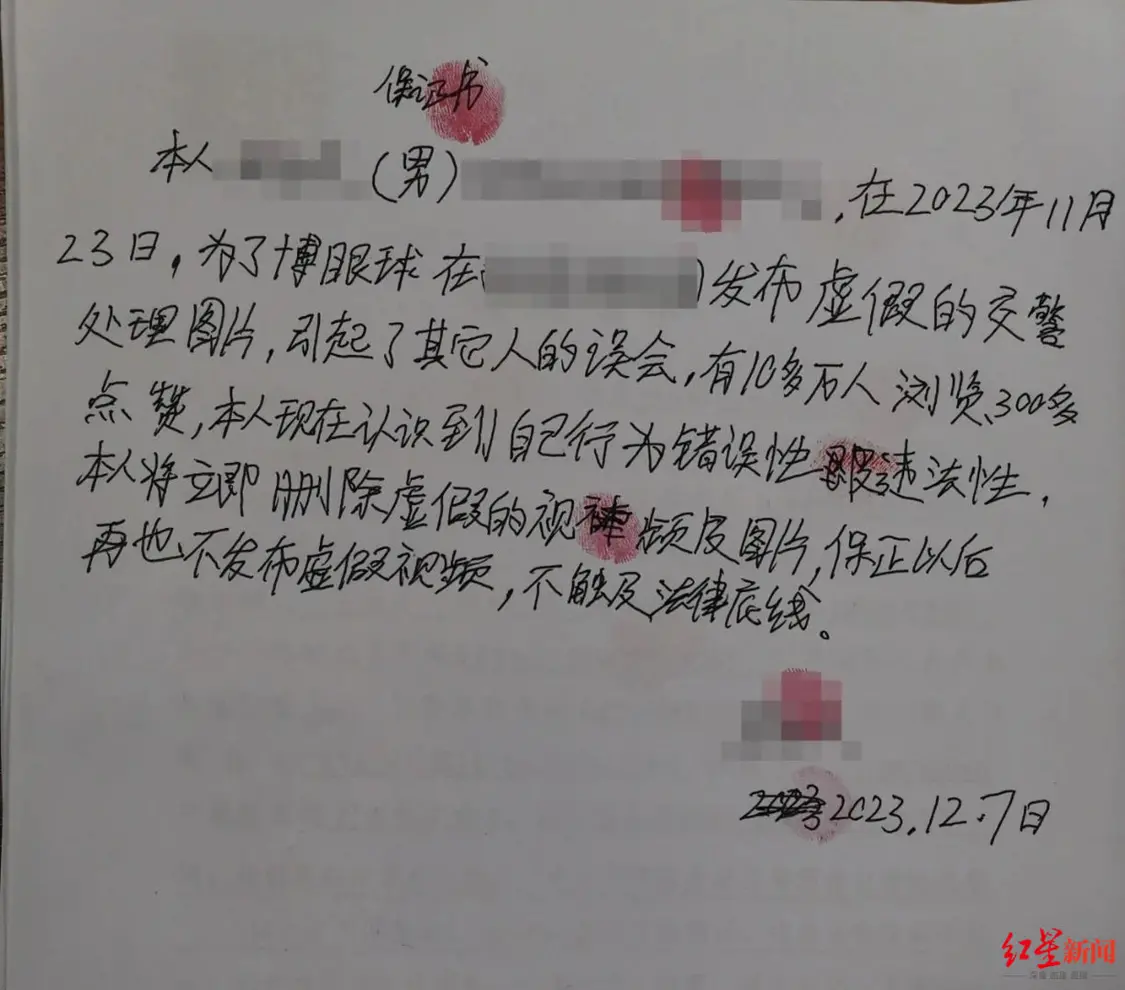 保证书
本人 (男) ,在2023年11月
23日,为了博眼球在( )发布虚假的交警
处理图片,引起了其它人的误会,有10多万人浏览300多
点赞,本人现在认识到自己行为错误性 违法性,
本人将立即删除虚假的视 频及图片,保正以后
再也不发布虚假视频,不触及法律底线。
2023.12.7日
红星新闻